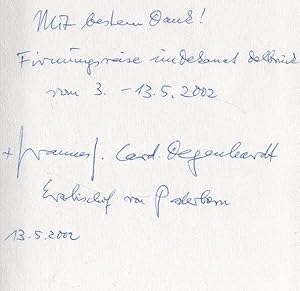 Mit bestem Dank!
Firmungsreise im Dekanat Delbrück
vom 3. - 13.5.2002
+ Johannes J. Card. Degenhardt
Erzbischof von Paderborn
13.5.2002